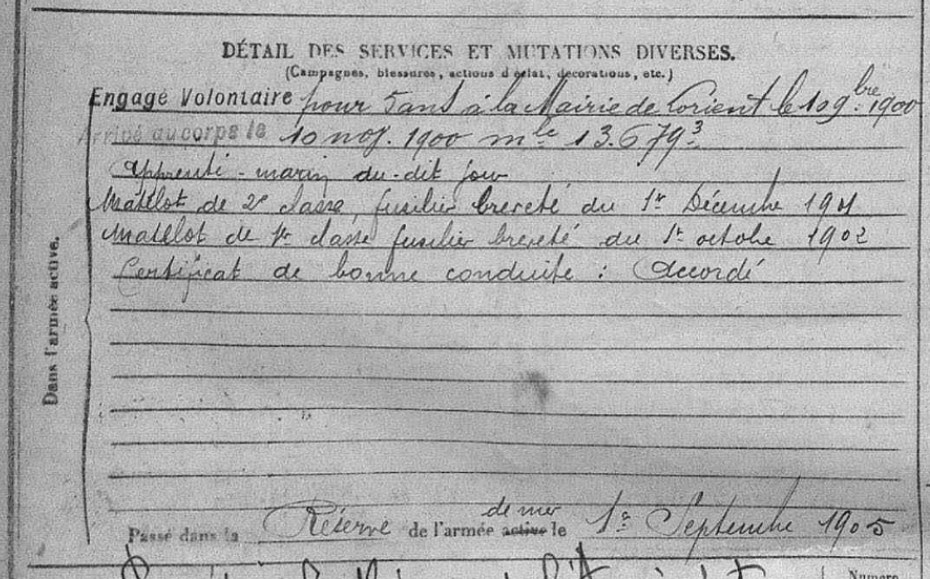 DÉTAIL DES SERVICES ET MUTATIONS DIVERSES.
(Campagnes, blessures, actions d'éclat, décorations, etc.)
Engagé Volontaire pour 5 ans à la Mairie de Lorient le 10 9bre 1900
Arrivé au corps le 10 nov. 1900 mle 13.679³
Apprenti-marin du-dit jour
Matelot de 2e classe, fusilier breveté du 1er Décembre 1901
Matelot de 1re classe fusilier breveté du 1er octobre 1902
Certificat de bonne conduite : Accordé
Dans l'armée active.
Passé dans la Réserve de l'armée active de mer le 1er Septembre 1905
Numéro